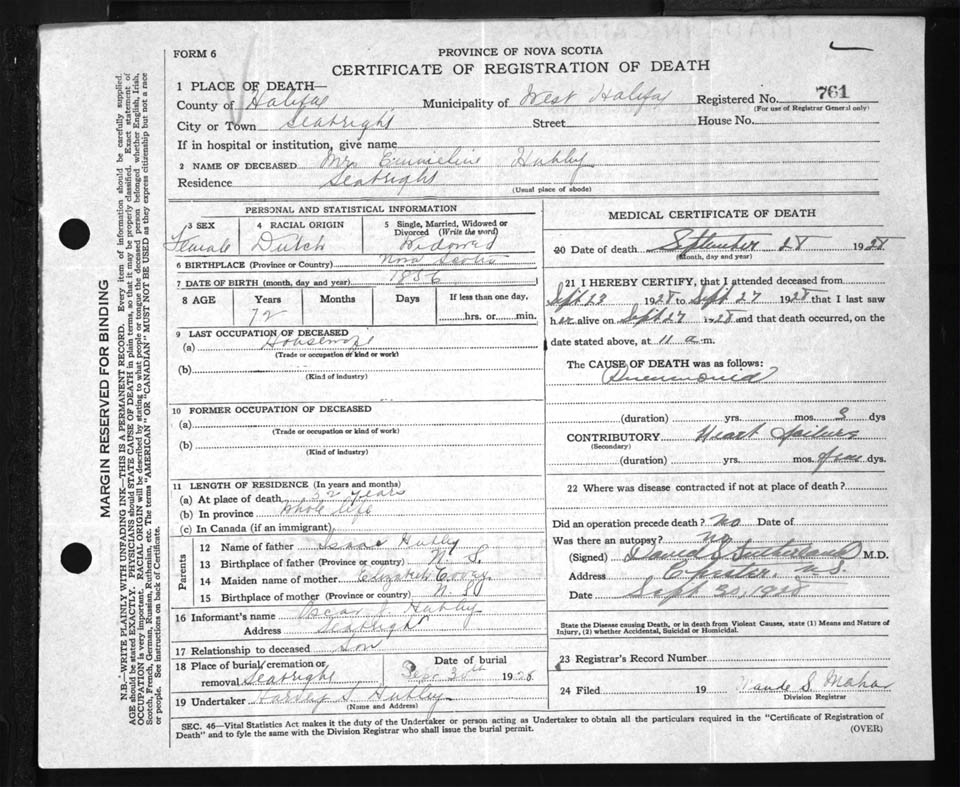 FORM 6
PROVINCE OF NOVA SCOTIA
CERTIFICATE OF REGISTRATION OF DEATH
1 PLACE OF DEATH—
County of Halifax Municipality of West Halifax Registered No. 761
(For use of Registrar General only)
City or Town Seabright Street House No.
If in hospital or institution, give name
2 NAME OF DECEASED Mrs Emmeline Hubley
Residence Seabright
(Usual place of abode)
PERSONAL AND STATISTICAL INFORMATION
3 SEX 4 RACIAL ORIGIN 5 Single, Married, Widowed or Divorced (Write the word)
Female Dutch Widowed
6 BIRTHPLACE (Province or Country) Nova Scotia
7 DATE OF BIRTH (month, day and year) 1856
8 AGE Years Months Days If less than one day,
72 hrs. or min.
9 LAST OCCUPATION OF DECEASED
(a) Housewife
(Trade or occupation or kind or work)
(b)
(Kind of industry)
10 FORMER OCCUPATION OF DECEASED
(a)
(Trade or occupation or kind of work)
(b)
(Kind of industry)
11 LENGTH OF RESIDENCE (In years and months)
(a) At place of death 32 years
(b) In province whole life
(c) In Canada (if an immigrant)
Parents
12 Name of father Isaac Hubley
13 Birthplace of father (Province or country) N. S.
14 Maiden name of mother Elizabeth
15 Birthplace of mother (Province or country) N. S.
16 Informant's name Oscar Hubley
Address Seabright
17 Relationship to deceased Son
18 Place of burial, cremation or removal Seabright Date of burial Sept 30th 1928
19 Undertaker Harvey S. Hubley
(Name and Address)
MEDICAL CERTIFICATE OF DEATH
20 Date of death September 28 1928
(Month, day and year)
21 I HEREBY CERTIFY, that I attended deceased from
Sept 23 1928 to Sept 27 1928 that I last saw
her alive on Sept 27 1928 and that death occurred, on the
date stated above, at 11 a.m.
The CAUSE OF DEATH was as follows:
Pneumonia
(duration) yrs. mos. 8 dys
CONTRIBUTORY Heart Failure
(Secondary)
(duration) yrs. mos. few dys.
22 Where was disease contracted if not at place of death?
Did an operation precede death? No Date of
Was there an autopsy? no
(Signed) David Sutherland M.D.
Address Chester, N.S.
Date Sept 30, 1928
State the Disease causing Death, or in death from Violent Causes, state (1) Means and Nature of
Injury, (2) whether Accidental, Suicidal or Homicidal.
23 Registrar's Record Number
24 Filed 19 S. Mahar
Division Registrar
SEC. 46—Vital Statistics Act makes it the duty of the Undertaker or person acting as Undertaker to obtain all the particulars required in the "Certificate of Registration of
Death" and to fyle the same with the Division Registrar who shall issue the burial permit.
(OVER)
MARGIN RESERVED FOR BINDING
N.B.—WRITE PLAINLY WITH UNFADING INK—THIS IS A PERMANENT RECORD. Every item of information should be carefully supplied.
AGE should be stated EXACTLY. PHYSICIANS should STATE CAUSE OF DEATH in plain terms, so that it may be properly classified. Exact statement of
OCCUPATION is very important. RACIAL ORIGIN will be described by stating to what people or tongue the deceased person belonged whether English, Irish,
Scotch, French, German, Russian, Ruthenian, etc. The terms "AMERICAN" OR "CANADIAN" MUST NOT BE USED as they express citizenship but not a race
or people. See instructions on back of Certificate.